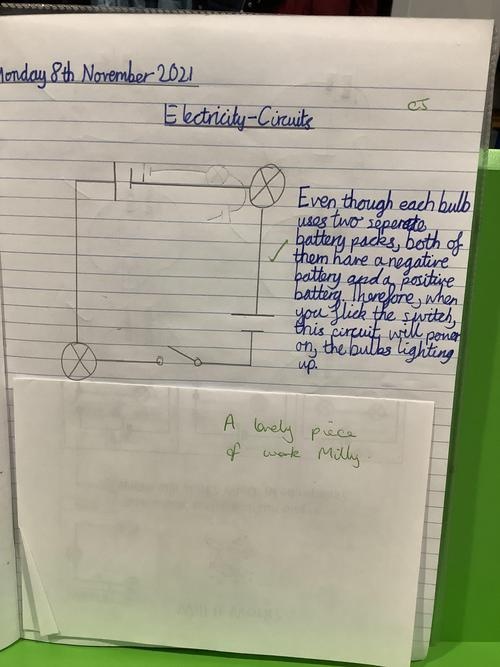 Monday 8th November 2021
CJ
Electricity-Circuits
Even though each bulb
uses two seperate
battery packs, both of
them have a negative
battery and a positive
battery. Therefore, when
you flick the switch,
this circuit will power
on, the bulbs lighting
up.
A lovely piece
of work Milly.